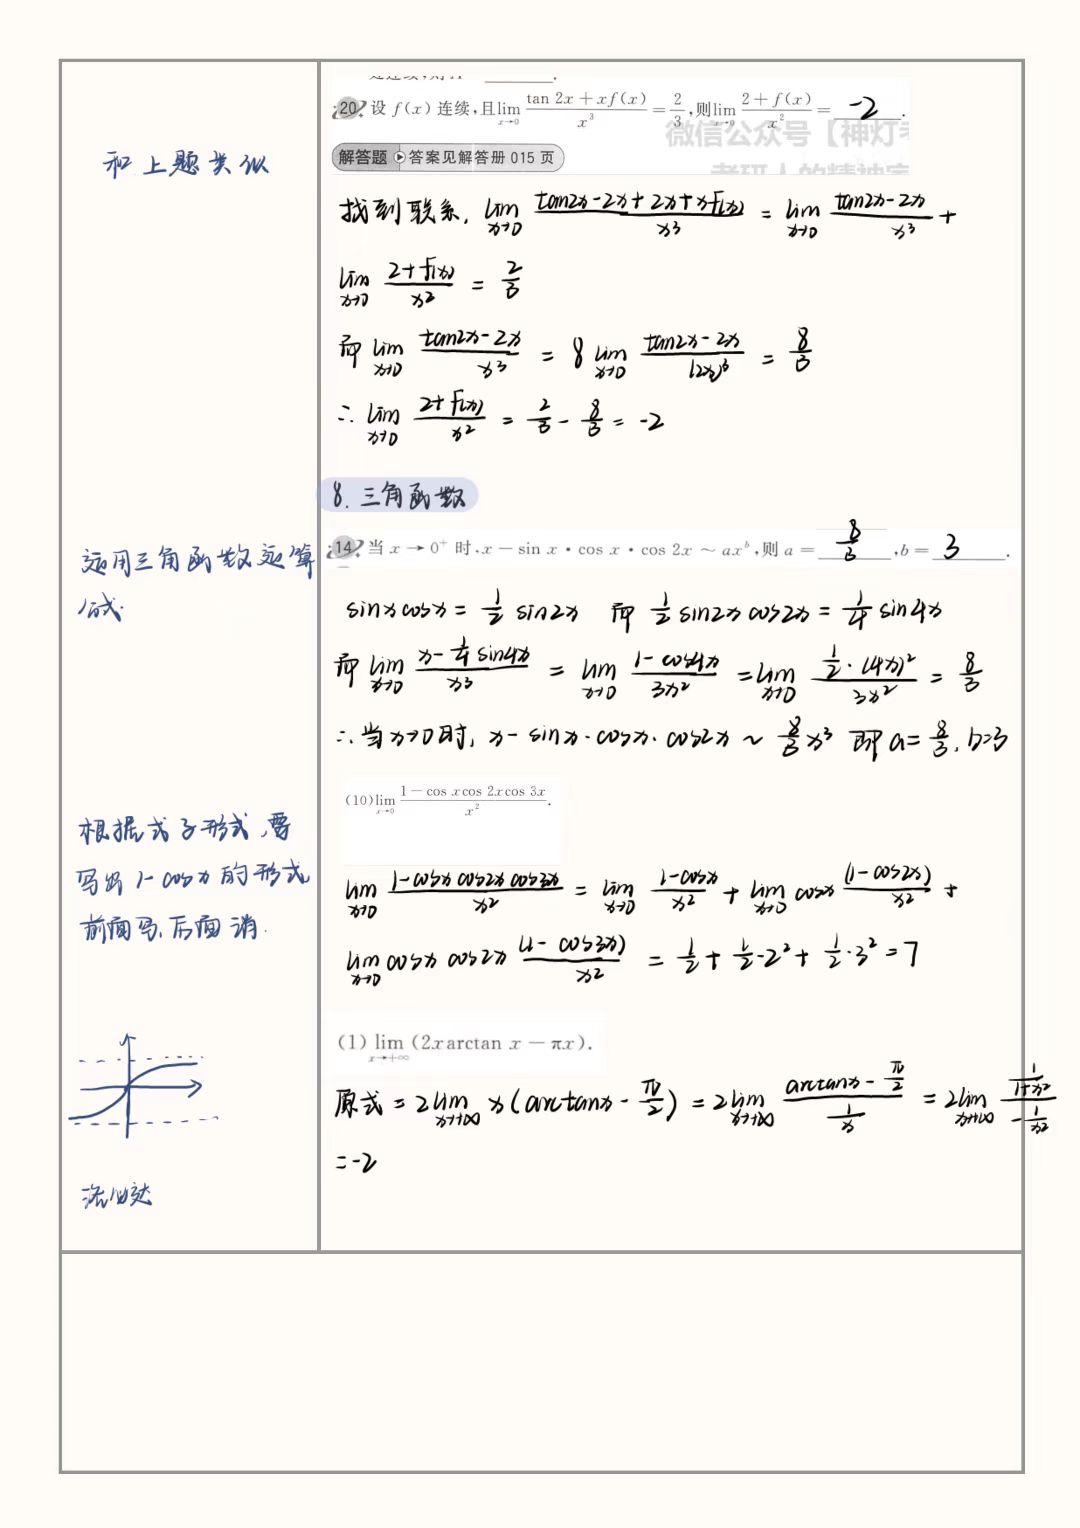 20 设 f(x) 连续,且lim x→0 (tan 2x + xf(x))/x³ = 2/3,则lim x→0 (2+f(x))/x² = -2.
微信公众号【神灯考
解答题 答案见解答册 015 页
考研人的精神家
和上题类似
找到联系, lim x→0 (tan2x-2x+2x+xf(x))/x³ = lim x→0 (tan2x-2x)/x³ +
lim x→0 (2+f(x))/x² = 2/3
而 lim x→0 (tan2x-2x)/x³ = 8 lim x→0 (tan2x-2x)/(2x)³ = 8/3
∴ lim x→0 (2+f(x))/x² = 2/3 - 8/3 = -2
8. 三角函数
14 当 x→0⁺ 时,x－sin x·cos x·cos 2x～axᵇ,则 a= 8/3 ,b= 3 .
运用三角函数运算
sinx cosx = 1/2 sin2x 而 1/2 sin2x cos2x = 1/4 sin4x
而 lim x→0 (x-1/4 sin4x)/x³ = lim x→0 (1-cos4x)/3x² = lim x→0 (1/2·(4x)²)/3x² = 8/3
∴当x→0时, x-sinx·cosx·cos2x ～ 8/3 x³ 即a=8/3, b=3
(10) lim x→0 (1－cos xcos 2xcos 3x)/x².
根据式子形式,要
写出 1-cosx 的形式
前面写,后面消.
lim x→0 (1-cosx cos2x cos3x)/x² = lim x→0 (1-cosx)/x² + lim x→0 cosx (1-cos2x)/x² +
lim x→0 cosx cos2x (1-cos3x)/x² = 1/2 + 1/2·2² + 1/2·3² = 7
(1) lim x→+∞ (2xarctan x－πx).
原式 = 2lim x→+∞ x(arctanx - π/2) = 2lim x→+∞ (arctanx - π/2)/(1/x) = 2lim x→+∞ (1/(1+x²))/(-1/x²)
=-2
洛必达